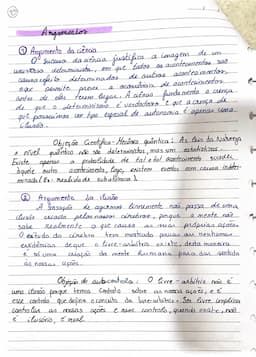 Argumentos
① Argumento da ciência
O sucesso da ciência justifica a imagem de um
universo determinista, em que todos os acontecimentos são
causa/efeito determinados de outros acontecimentos,
que permite prever a ocorrência de acontecimentos
antes de eles terem lugar. A ciência fundamenta a crença
de que o determinismo é verdadeiro e que a crença de
que possuímos um tipo especial de autonomia é apenas uma
ilusão.
Objeção Científica - Mecânica quântica: As leis da Natureza
a nível quântico não são deterministas, mas sim estatísticas.
Existe apenas a probabilidade de tal e tal acontecimento suceder
àquele outro acontecimento, logo, existem eventos com causa indeter-
minada (Ex: realidade subatómica).
② Argumento da ilusão
A sensação de agirmos livremente não passa de uma
ilusão criada pelo nosso cérebro, porque a mente não
sabe realmente o que causa as nossas próprias ações.
O estudo do cérebro tem mostrado poucas ou nenhumas
evidências de que o livre-arbítrio existe, desta maneira
é só uma criação da mente humana para dar sentido
às nossas ações.
Objeção do autocontrolo: O livre-arbítrio não é
uma ilusão porque temos controlo sobre as nossas ações, e é
esse controlo que define o conceito de livre-arbítrio. Ser livre implica
controlar as nossas ações e esse controlo, quando existe, não
é ilusório, é real.